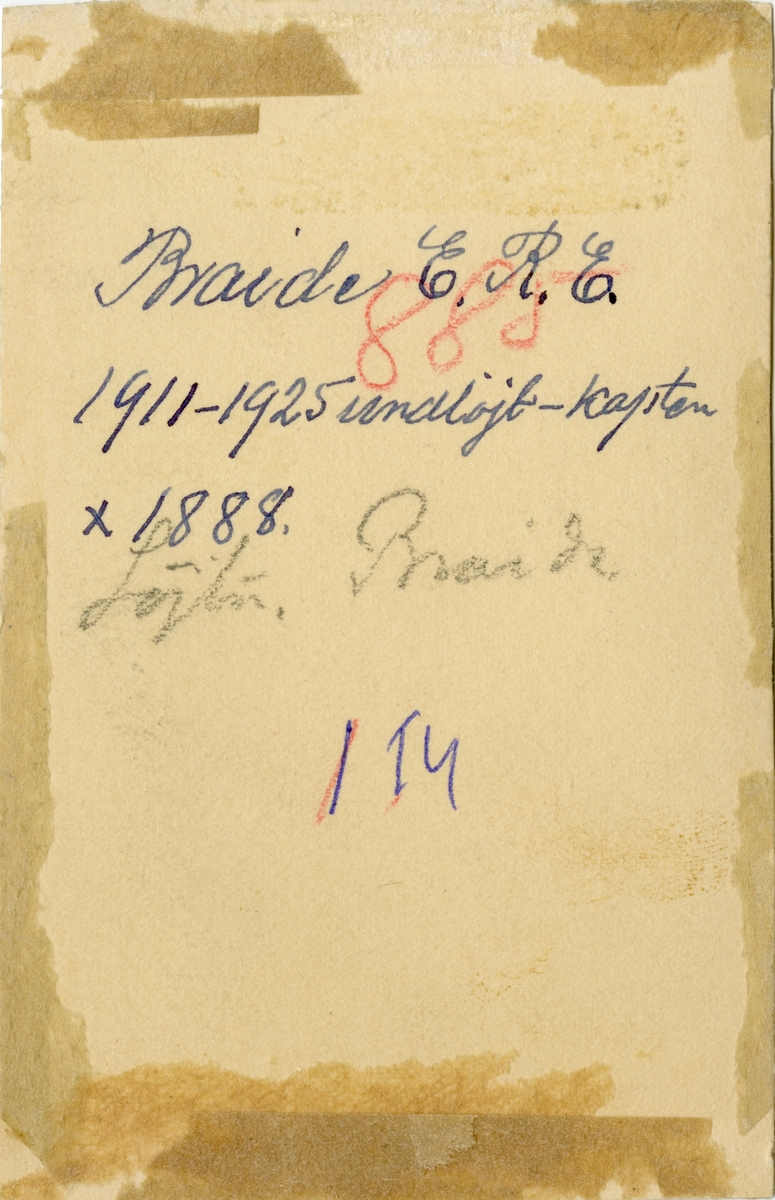 Braide E. R. E.
885
1911-1925 undlöjt-kapten
x 1888.
Löjtn. Braide
154